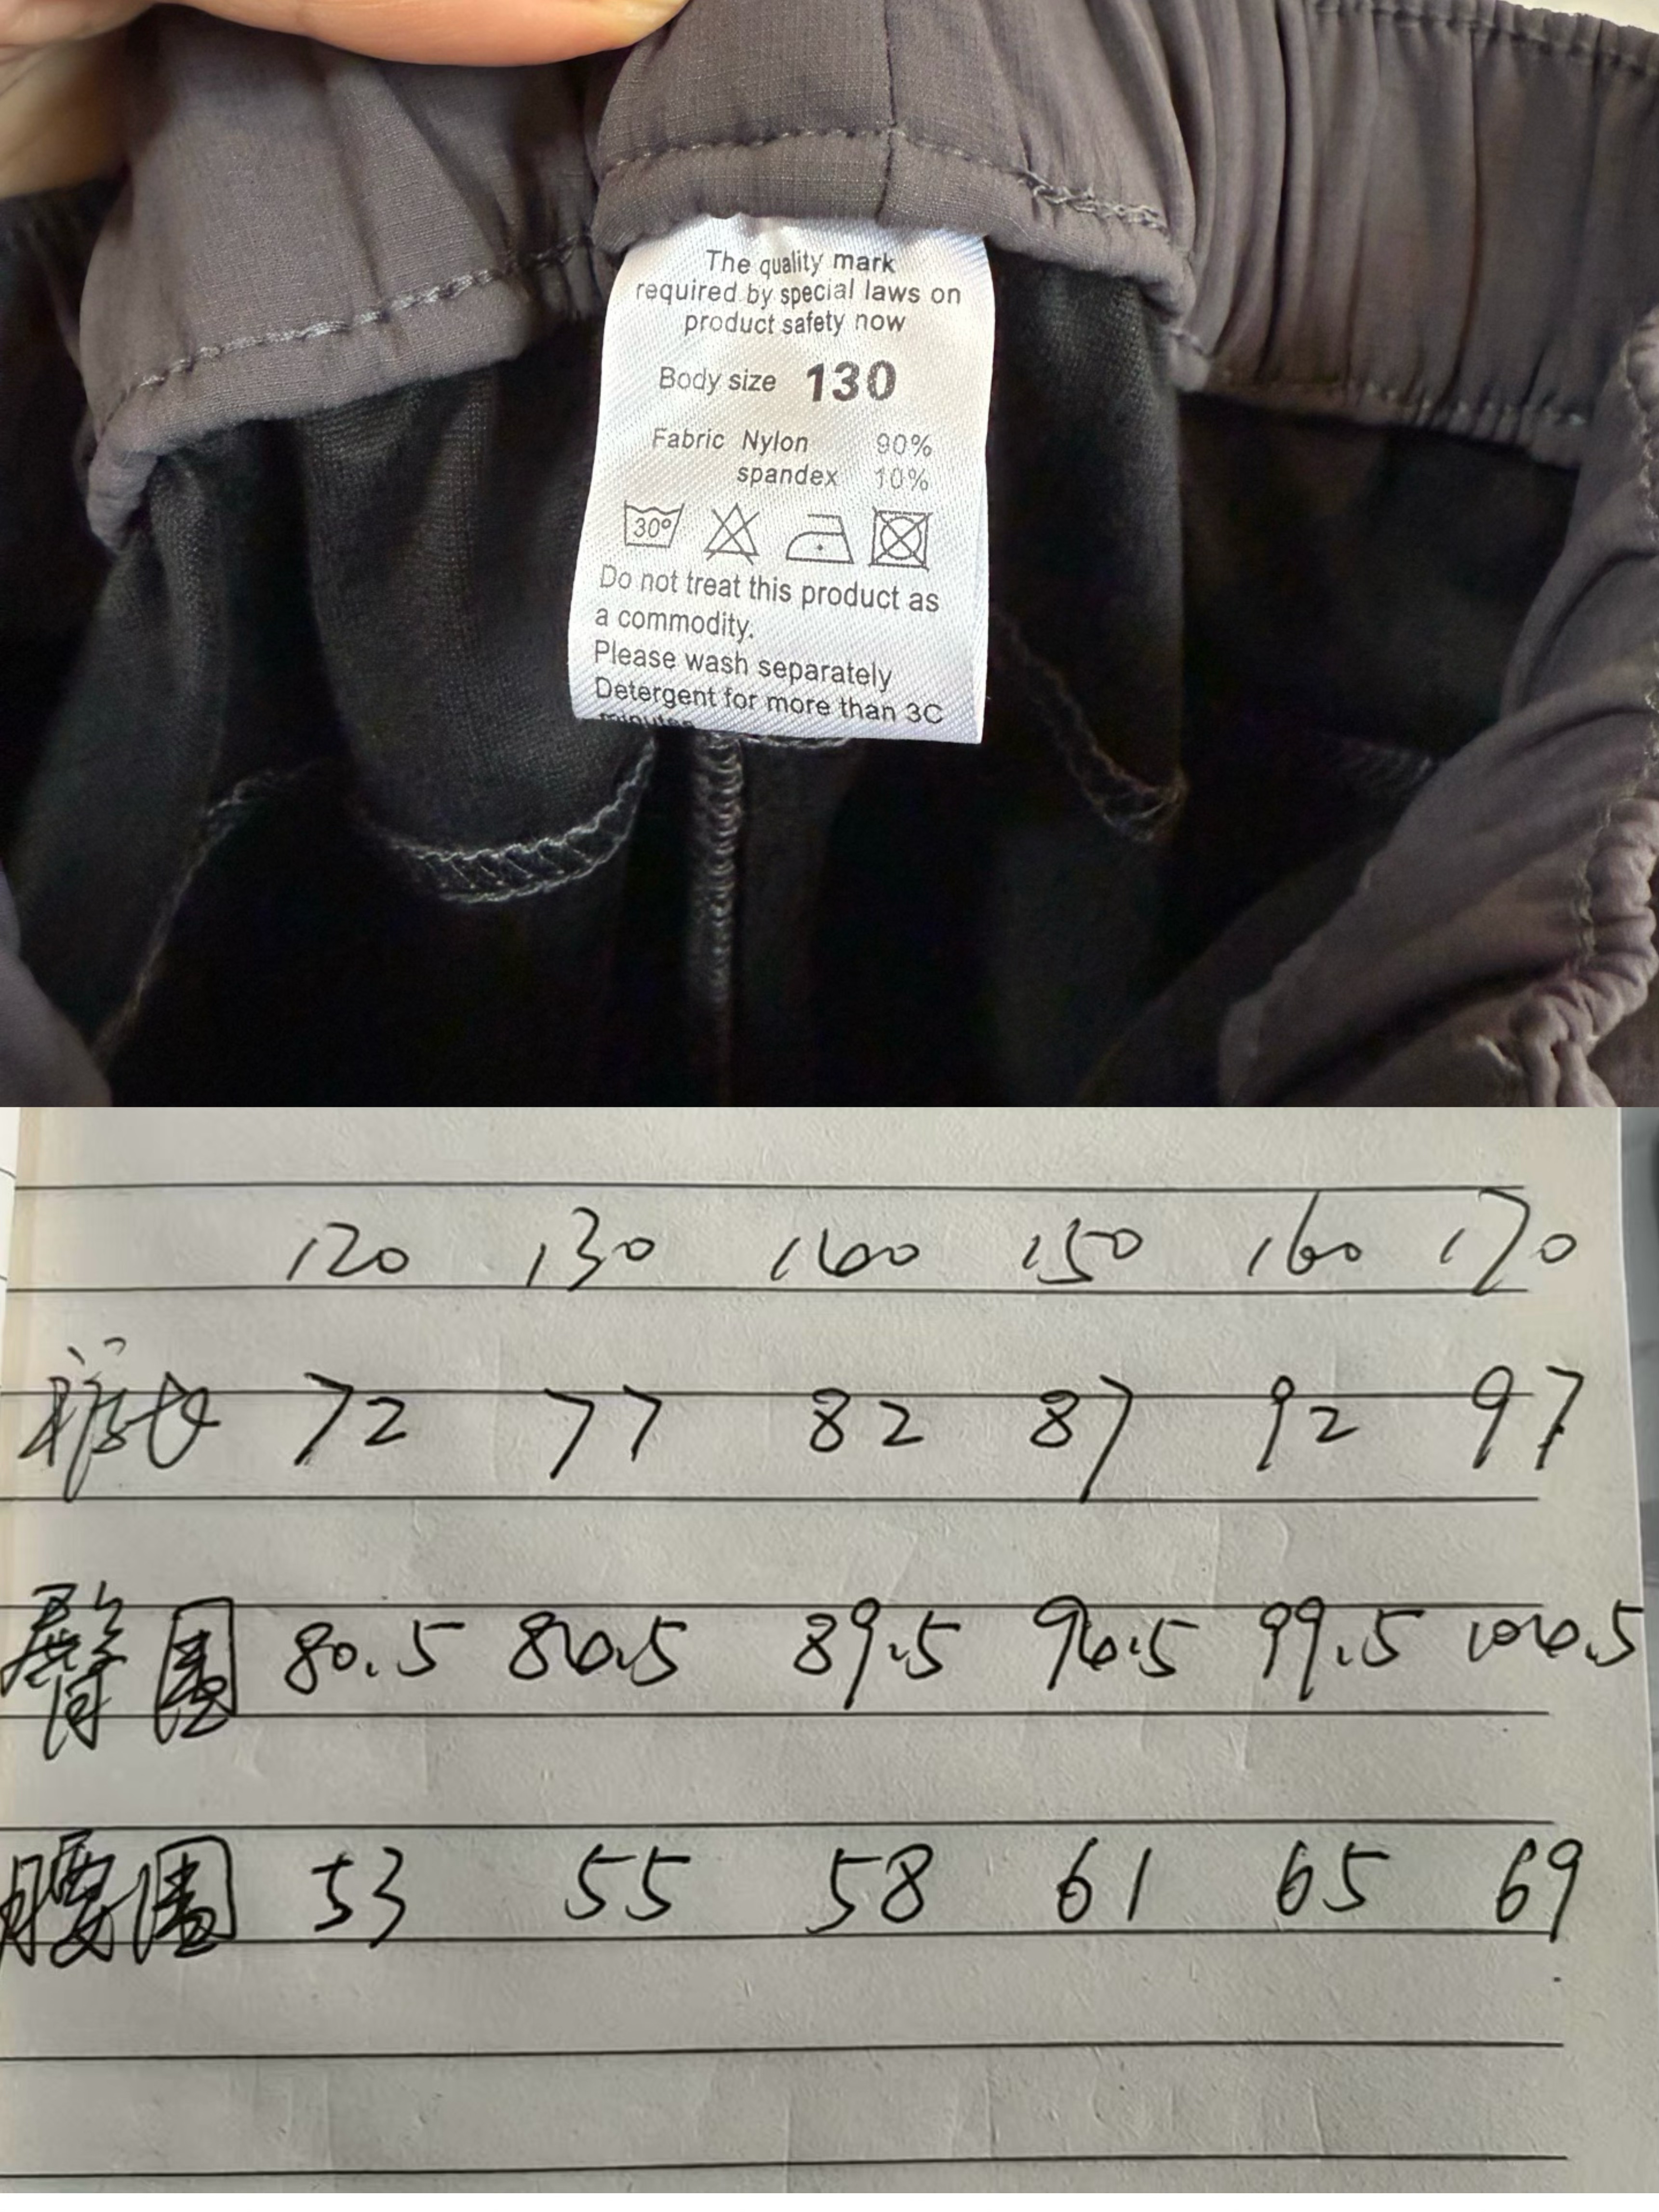 The quality mark
required by special laws on
product safety now
Body size 130
Fabric Nylon 90%
spandex 10%
30°
Do not treat this product as
a commodity.
Please wash separately
Detergent for more than 3C
minutes
120 130 160 150 160 170
裤长 72 77 82 87 92 97
臀围 80.5 86.5 89.5 96.5 99.5 106.5
腰围 53 55 58 61 65 69